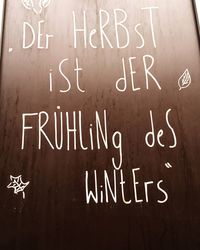 „DEr HeRBST
iST dER
FRÜHLiNg deS
WiNtErS“